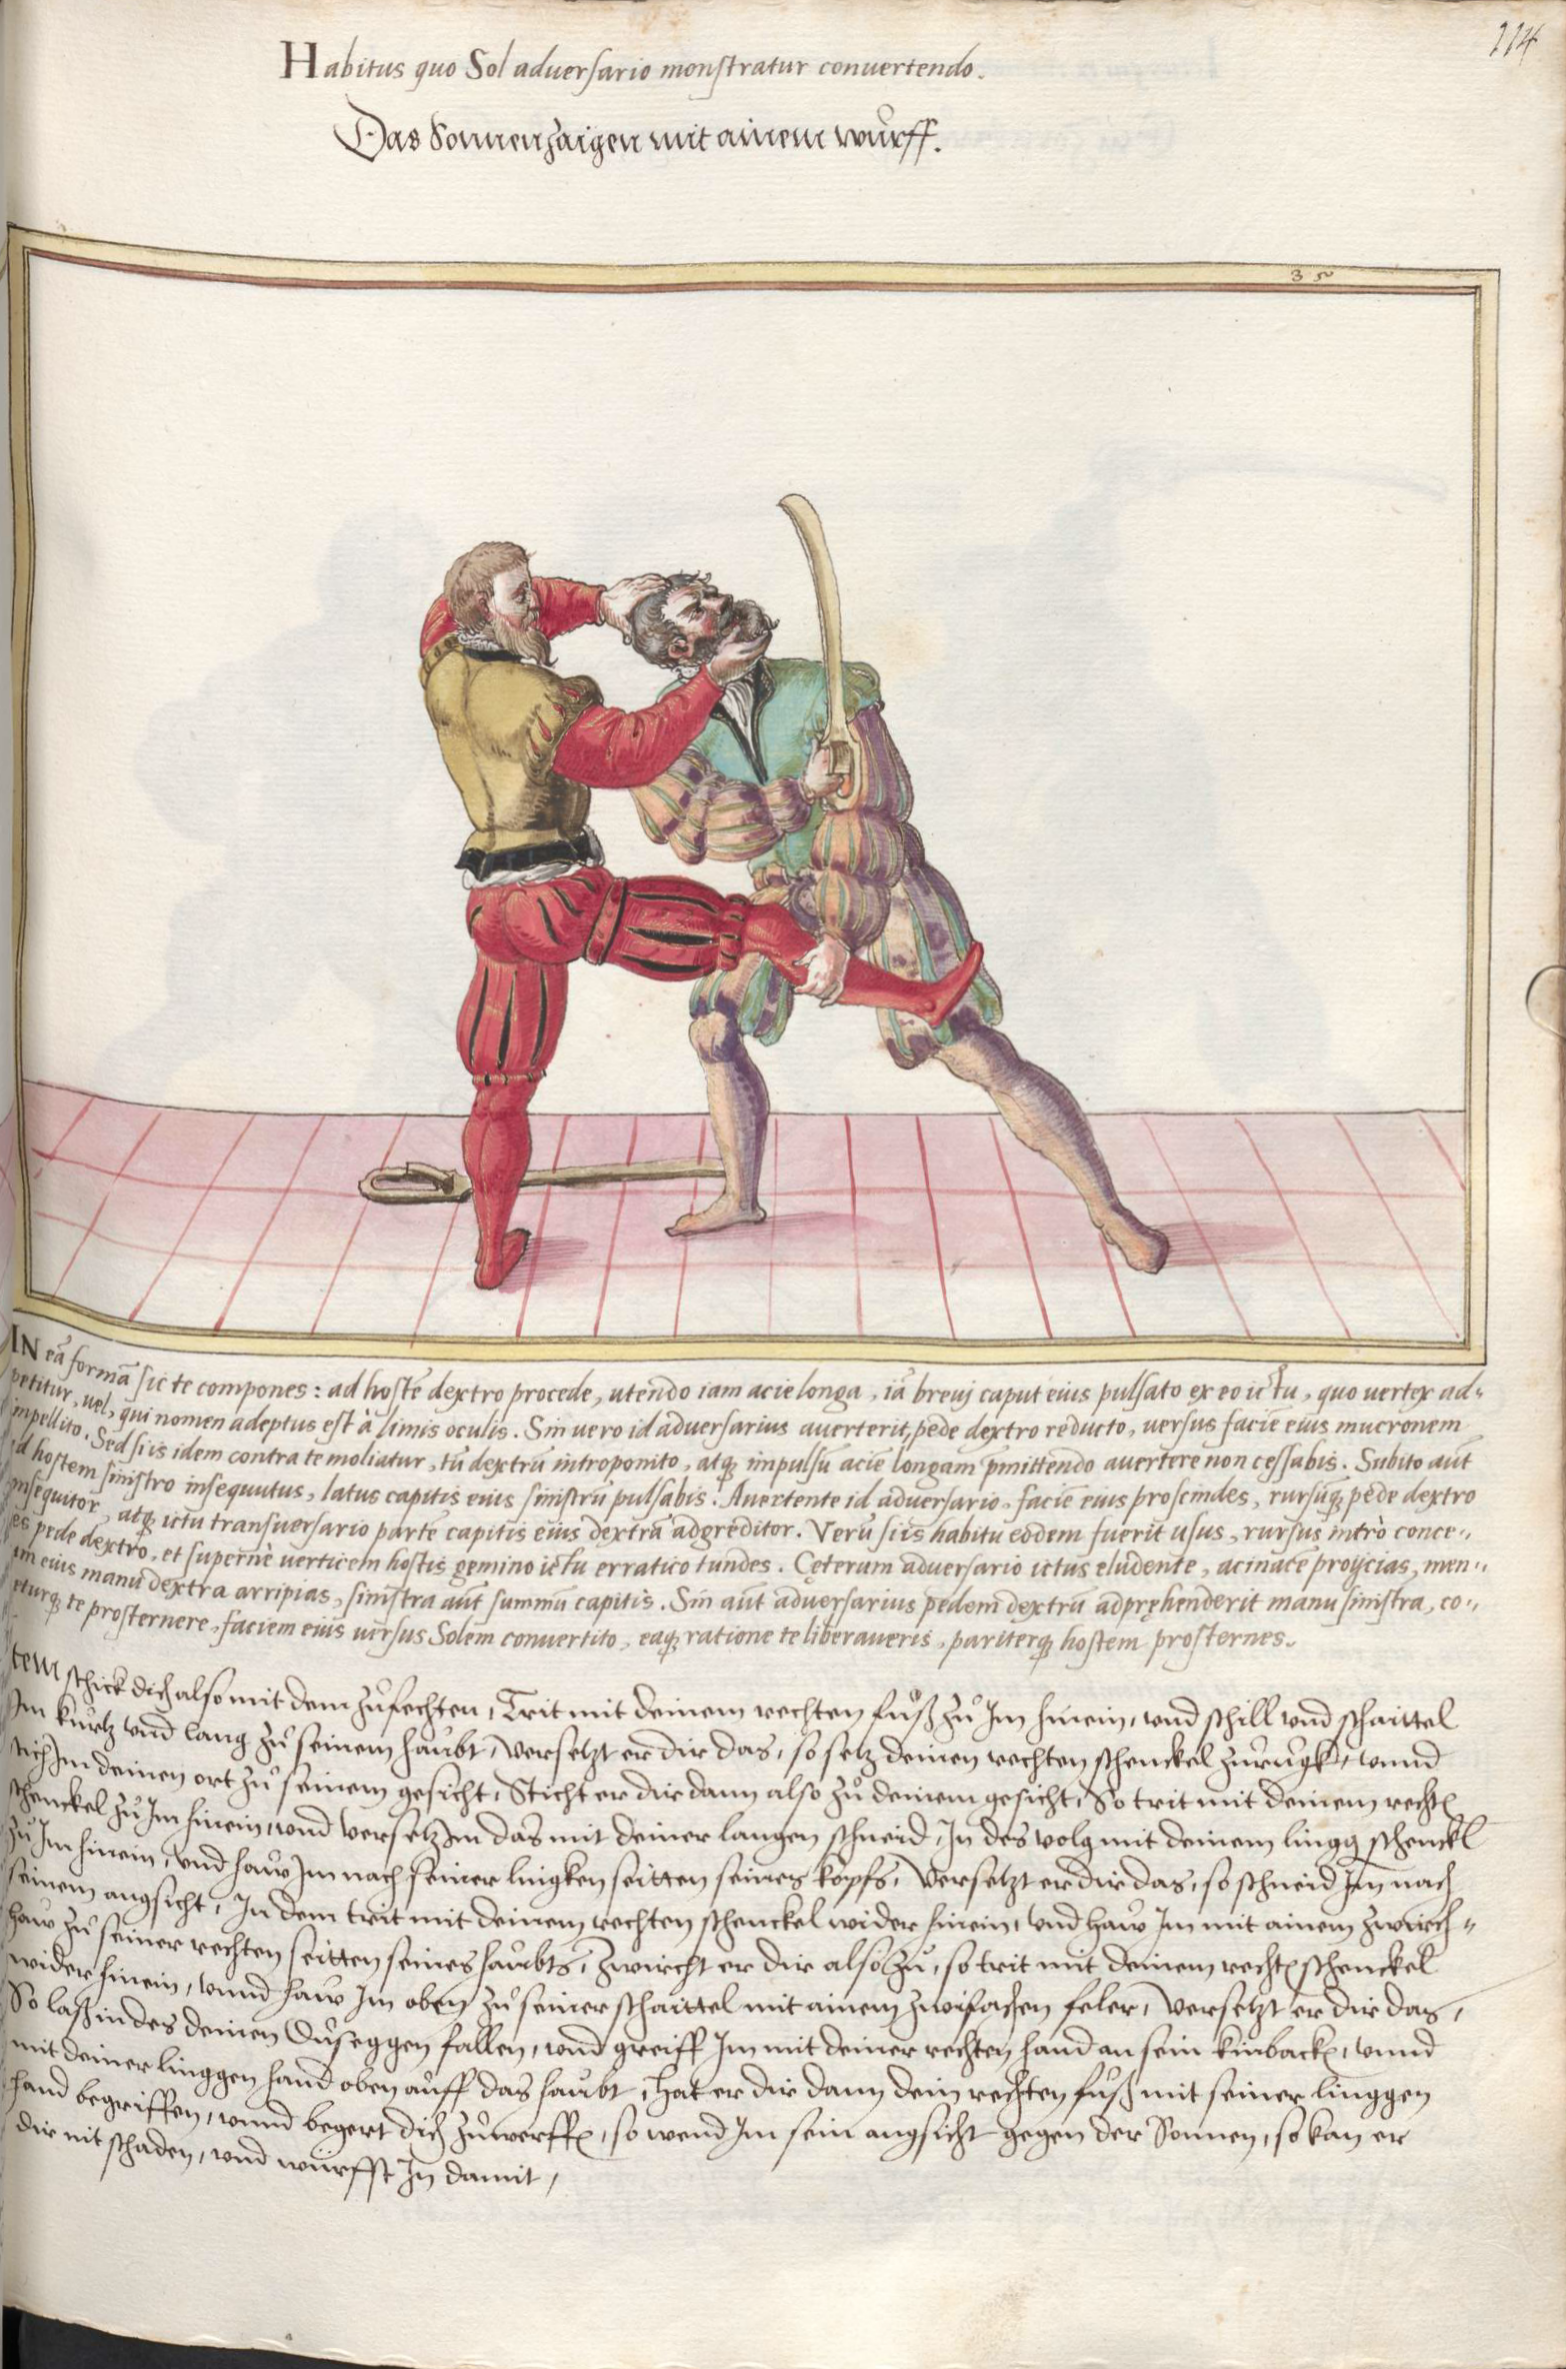 114
Habitus quo Sol adversario monstratur convertendo.
Das Sonnenzaigen mit ainem wurff.
35
IN eã formã sic te compones: ad hostẽ dextro procede, utendo iam acie longa, iã brevi caput eius pulsato ex eo ictu, quo vertex ad-
petitur, vel, qui nomen adeptus est à limis oculis. Sin vero id adversarius averterit, pede dextro reducto, versus faciẽ eius mucronem
impellito. Sed si is idem contra te moliatur, tũ dextrũ introponito, atq; impulsũ acie longam p̃mittendo avertere non cessabis. Subito aũt
ad hostem sinistro insequutus, latus capitis eius sinistrũ pulsabis. Avertente id adversario, faciẽ eius proscindes, rursũq; pede dextro
insequitor, atq; ictu transversario partẽ capitis eius dextrã adgreditor. Verũ si is habitu eodem fuerit usus, rursus intrò conce-
es pede dextro, et supernè verticem hostis gemino ictu erratico tundes. Cęterum adversario ictus eludente, acinacẽ proijcias, men-
um eius manu dextra arripias, sinistra aũt summũ capitis. Sin aũt adversarius pedem dextrũ adpręhenderit manu sinistra, co-
eturq; te prosternere, faciem eius versus Solem convertito, eaq; ratione te liberaveris, pariterq; hostem prosternes.
tem schick dich also mit dem zůfechten, Trit mit deinem rechten fůß zů Im hinein, und schill und schaittel
Im kurtz und lang zů seinem haubt, versetzt er dir das, so setz deinen rechten schenckel zurugk, unnd
stich Im deinen ort zů seinem gesicht, Sticht er dir dann also zů deinem gesicht, So trit mit deinem rechtẽ
schenckel zů Im hinein, und versetz Im das mit deiner langen schneid, In des volg mit deinem lingg schenckl
zů Im hinein, und haw Im nach seiner lingken seitten seines kopfs, Versetzt er dir das, so schneid Im nach
seinem angsicht, In dem trit mit deinem rechten schenckel wider hinein, und haw Im mit ainem zwirch-
haw zů seiner rechten seitten seines haubts, Zwircht er dir also zů, so trit mit deinem rechtẽ schenckel
wider hinein, unnd haw Im oben zů seiner schaittel mit ainem zwifachen feler, Versetzt er dir das,
So laß in des deinen Duseggen fallen, und greiff Im mit deiner rechten hand an sein kinbackẽ, unnd
mit deiner linggen hand oben auff das haubt, hat er dir dann dein rechten fůß mit seiner linggen
hand begriffen, unnd begert dich zůwerffẽ, so wend Im sein angsicht gegen der Sonnen, so kan er
dir nit schaden, und würffst In damit,